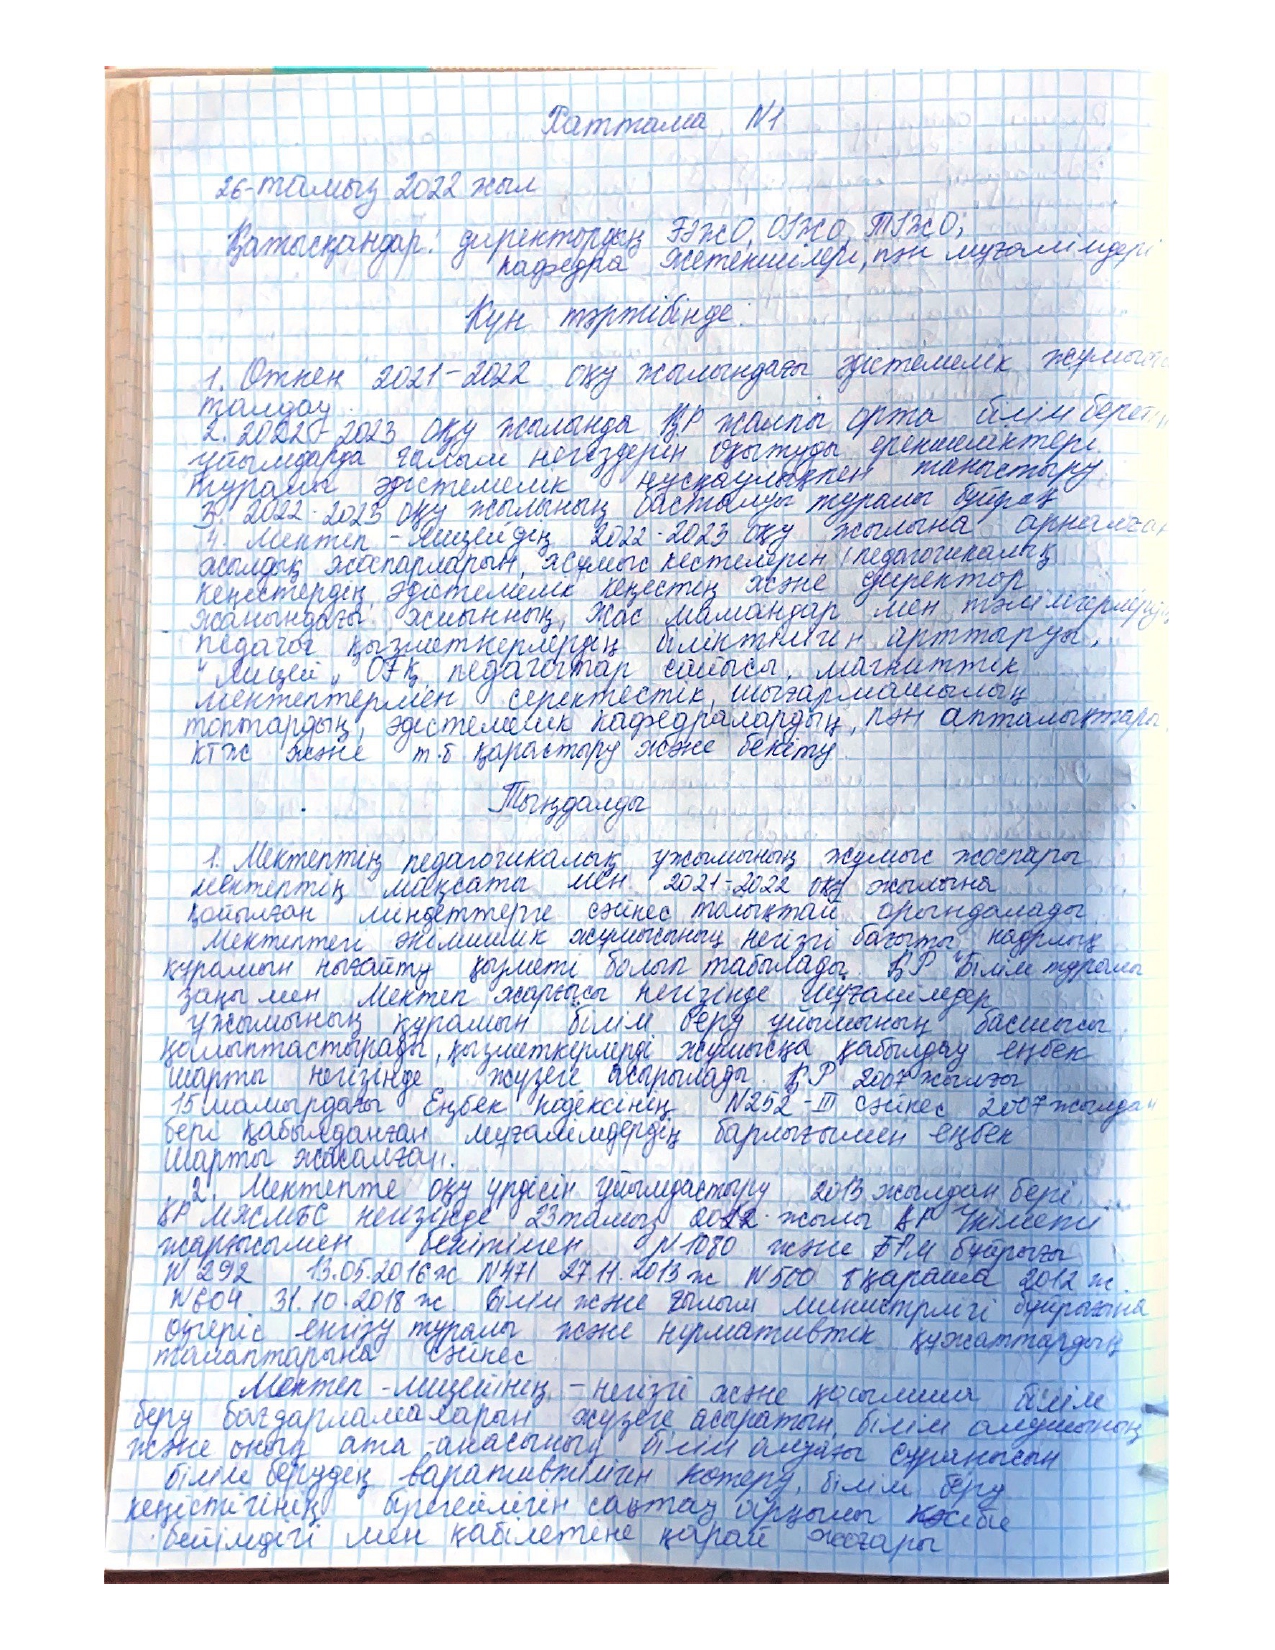 Хаттама №1
26-тамыз 2022 жыл
Қатысқандар: директордың ҒІЖО, ОІЖО, ТІЖО,
кафедра жетекшілері, пән мұғалімдері
Күн тәртібінде:
1. Өткен 2021-2022 оқу жылындағы әдістемелік
талдау.
2. 2022-2023 оқу жылында ҚР жалпы орта білім беретін
ұйымдарда ғылым негіздерін оқытудың ерекшеліктері
туралы әдістемелік нұсқаулықпен таныстыру.
3. 2022-2023 оқу жылының басталуы туралы бұйрық
4. Мектеп-лицейдің 2022-2023 оқу жылына арналған
жылдық жапарларын, жұмыс кестелерін, педагогикалық
кеңестердің, әдістемелік кеңестің және директор
жанындағы жиынның, жас мамандар мен тәлімгерлердің
педагог қызметкерлердің біліктілігін арттыруы,
"Лицей", ОҒҚ, педагогтар сайысы, магниттік
мектептермен серіктестік, шығармашылық
топтардың, әдістемелік кафедралардың, пән апталықтары
КТЖ және т.б қарастыру және бекіту.
Тыңдалды
1. Мектептің педагогикалық ұжымының жұмыс жоспары
мектептің мақсаты мен 2021-2022 оқу жылына
қойылған міндеттерге сәйкес толықтай орындалады
Мектептегі әкімшілік жұмысының негізгі бағыты кадрлық
құрамын нығайту қызметі болып табылады. ҚР "Білім туралы
заңы мен Мектеп жарғысы негізінде мұғалімдер
ұжымының құрамын білім беру ұйымының басшысы
қалыптастырады, қызметкерлерді жұмысқа қабылдау еңбек
шарты негізінде жүзеге асырылады. ҚР 2007 жылғы
15 мамырдағы Еңбек кодексінің №252-III сәйкес 2007 жылдан
бері қабылданған мұғалімдердің барлығымен еңбек
шарты жасалған.
2. Мектепте оқу үрдісін ұйымдастыру 2013 жылдан бері
ҚР МЖМБС негізінде 23 тамыз 2012 жылы ҚР Үкіметі
жарғысымен бекітілген №1080 және БҒМ бұйрығы
№292 13.05.2016ж №471 27.11.2013ж №500 8 қараша 2012 ж.
№604 31.10.2018 ж. Білім және ғылым министрлігі бұйрығына
өзгеріс енгізу туралы және нормативтік құжаттардың
талаптарына сәйкес
Мектеп-лицейінің - негізгі және қосымша білім
беру бағдарламаларын жүзеге асыратын, білім алушының
және оның ата-анасының білім алудағы сұранысын
білім берудең варативтілігін көтеру, білім беру
кеңістігінің біргейлігін сақтау арқылы кәсіби
бейімдігі мен қабілетіне қарай жоғары